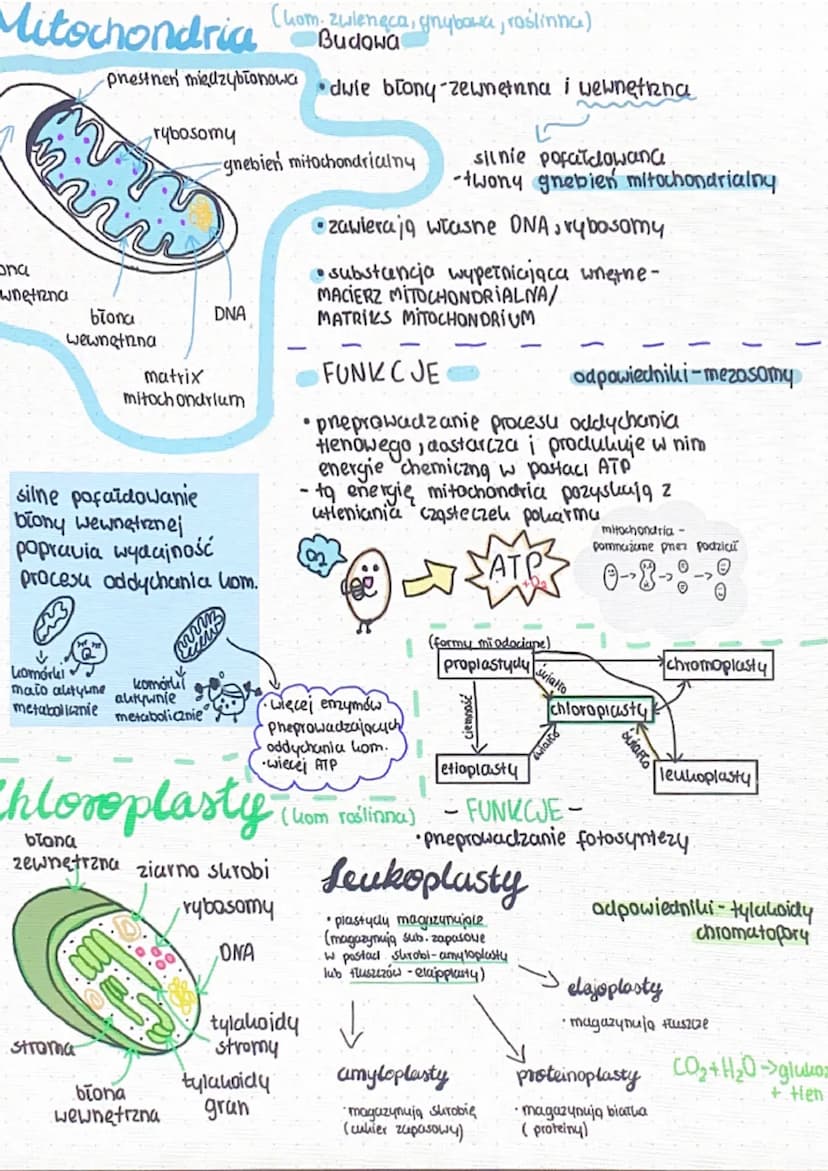 Mitochondria (kom. zwierzęca, grzybowa, roślinna)
Budowa
przestrzeń międzybłonowa
rybosomy
grzebień mitochondrialny
ona
wnętrzna
błona
wewnętrzna
DNA
matrix
mitochondrium
• dwie błony-zewnętrzna i wewnętrzna
silnie pofałdowana
-tworzy grzebień mitochondrialny
• zawierają własne DNA, rybosomy
• substancja wypełniająca wnętrze-
MACIERZ MITOCHONDRIALNA/
MATRIKS MITOCHONDRIUM
- FUNKCJE
odpowiedniki-mezosomy
• przeprowadzanie procesu oddychania
tlenowego, dostarcza i produkuje w nim
energie chemiczną w postaci ATP
- tą energię mitochondria pozyskują z
utleniania cząsteczek pokarmu
silne pofałdowanie
błony wewnętrznej
poprawia wydajność
procesu oddychania kom.
komórki
mało aktywne
metabolicznie
komórki
aktywnie
metabolicznie
• więcej enzymów
przeprowadzających
oddychania kom.
• więcej ATP
O2
ATP
mitochondria -
pomnażane przez podział
(formy młodociane)
proplastydy
chromoplasty
światło
chloroplasty
ciemność
światło
światło
etioplasty
leukoplasty
Chloroplasty (kom roślinna)
- FUNKCJE -
• przeprowadzanie fotosyntezy
błona
zewnętrzna
ziarno skrobi
rybosomy
DNA
tylakoidy
stromy
tylakoidy
gran
stroma
błona
wewnętrzna
Leukoplasty
• plastydy magazynujące
(magazynują sub. zapasowe
w postaci skrobi-amyloplasty
lub tłuszczów-elajoplasty)
odpowiedniki-tylakoidy
chromatofory
elajoplasty
• magazynują tłuszcze
amyloplasty
• magazynują skrobię
(cukier zapasowy)
proteinoplasty
• magazynują białka
(proteiny)
CO2+H2O->glukoz
+ tlen